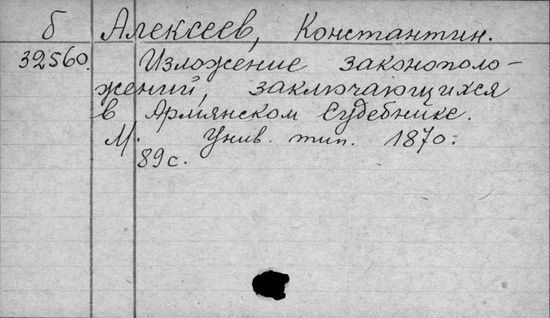 б Алексеев, Константин.
32560. Изложение законополо-
жений, заключающихся
в Армянском Судебнике.
М. Унив. тип. 1870.
89 с.